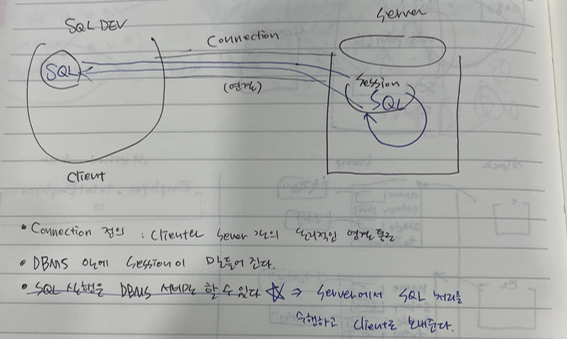 SQL DEV
Server
Connection
SQL
(연결)
Session
SQL
Client
• Connection 정의 : Client와 Sever 간의 논리적인 연결 통로
• DBMS 안에 Session이 만들어 진다.
• SQL 실행은 DBMS 서버만 할 수 있다 ☆ ⇒ Server에서 SQL 처리를
수행하고 Client로 보내준다.